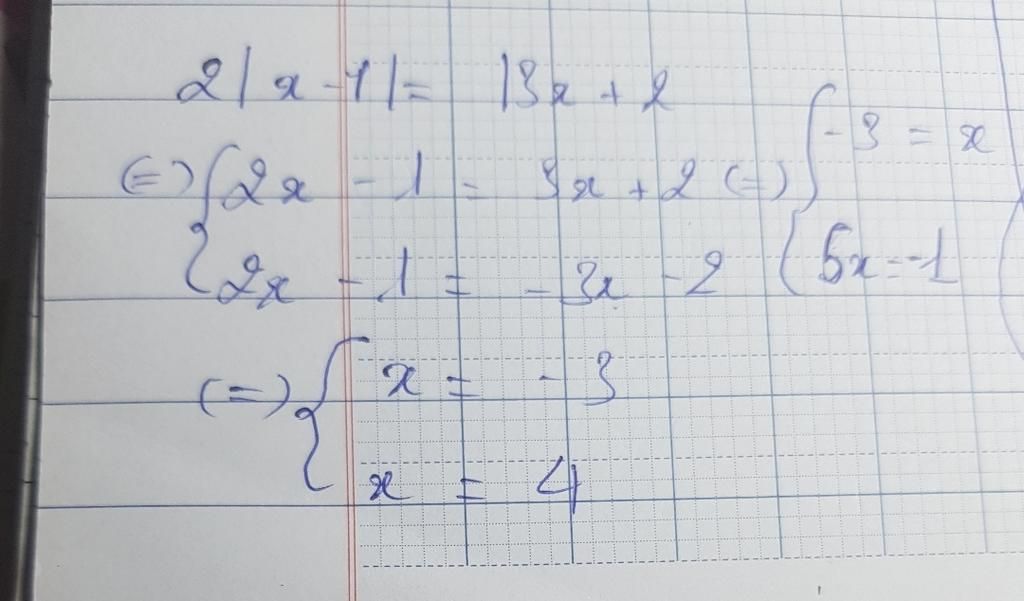 2|x-1|= |3x+2
(=) { 2x - 1 = 3x + 2 (=) { -3 = x
{ 2x - 1 = -3x - 2 { 5x=-1
(=) { x = -3
x = 4